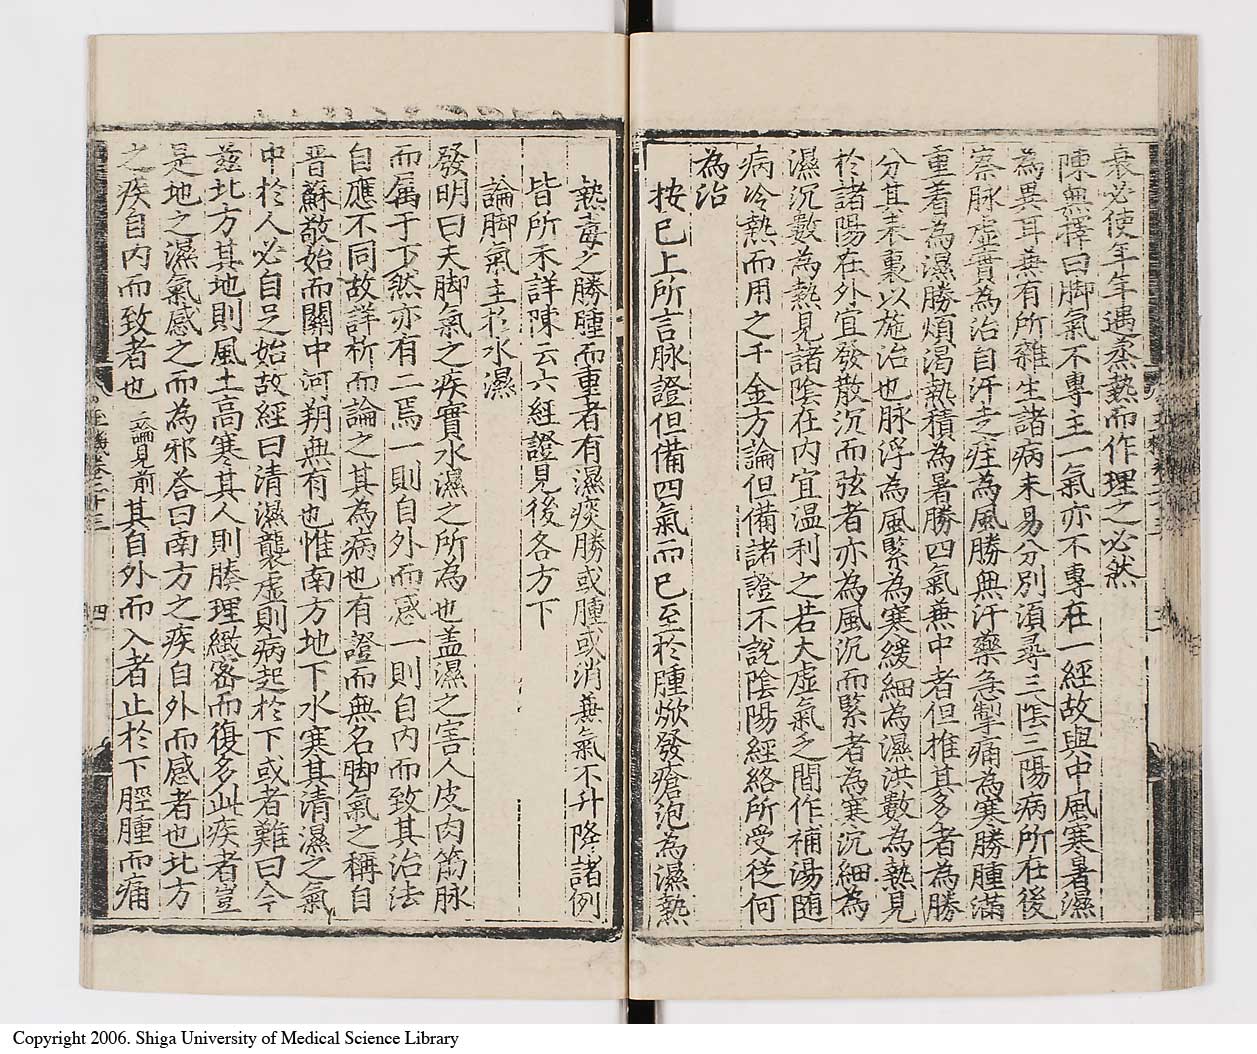 衰必使年年遇蒸熱而作理之必然
陳無擇曰脚氣不專主一氣亦不專在一經故與中風寒暑濕
為異耳兼有所雜生諸病未易分別須尋三陰三陽病所在後
察脉虛實為治自汗走疰為風勝無汗㽲急掣痛為寒勝腫滿
重著為濕勝煩渴熱積為暑勝四氣兼中者但推其多者為勝
分其表裏以施治也脉浮為風緊為寒緩細為濕洪數為熱見
於諸陽在外宜發散沉而弦者亦為風沉而緊者為寒沉細為
濕沉數為熱見諸陰在内宜温利之若大虛氣乏間作補湯随
病冷熱而用之千金方論但備諸證不說陰陽經絡所受從何
為治
按已上所言脉證但備四氣而已至於腫焮發瘡泡為濕熱
熱毒之勝腫而重者有濕痰勝或腫或消兼氣不升降諸例
皆所不詳陳云六經證見後各方下
論脚氣主於水濕
發明曰夫脚氣之疾實水濕之所為也盖濕之害人皮肉筋脉
而属于下然亦有二焉一則自外而感一則自内而致其治法
自應不同故詳析而論之其為病也有證而無名脚氣之稱自
晋蘇敬始而關中河朔無有也惟南方地下水寒其清濕之氣
中於人必自足始故經曰清濕襲虛則病起於下或者難曰今
兹北方其地則風土高寒其人則腠理緻密而復多此疾者豈
是地之濕氣感之而為邪荅曰南方之疾自外而感者也北方
之疾自内而致者也 論見前 其自外而入者止於下脛腫而痛
四
Copyright 2006. Shiga University of Medical Science Library